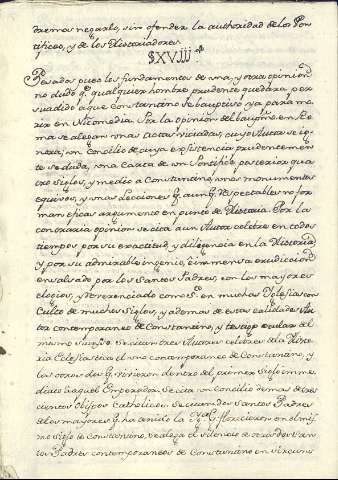 dremos negarlo, sin ofender la authoridad de los Pon
tifices, y de los Historiadores
§XVIII
Pesados pues los fundamentos de una, y otra opinion
no dudo q.e qualquier hombre prudente quedara per
suadido a que Constantino se bauptisó ya para mo
rir en Nicomedia. Por la opinion del baup.mo en Ro
ma se alegan unas Actas viciadas, cuyo Autor se ig
nora, un Concilio de cuya existencia prudentemen
te se duda, una Carta de un Pontifice posterior qua
tro Siglos, y medio a Constantino, unos monumentos
equivocos, y unas Lecciones q. aunq. respectables no for
man eficaz argumento en punto de Historia. Por la
contraria opinion se cita a un Autor celebre en todos
tiempos por su exactitud, y diligencia en la Historia
y por su admirable ingenio, é immensa erudicion
ensalzado por los Santos Padres, con los mayores
elogios, y reverenciado como S.to en muchas Iglesias con
Culto de muchos Siglos, y ademas de estas calidades Au
tor contemporaneo de Constantino, y testigo ocular del
mismo Sucesso. Se citan tres Autores celebres de la Histo
ria Eclesiastica el uno contemporaneo de Constantino, y
los otros dos q. vivieron dentro del primer Siglo imme
diato á aquel Emperador. Se cita un Concilio de mas de tres
cientos Obispos Catholicos. Se citan dos Santos Padres
de los mayores q. ha tenido la Ig.a q. florecieron en el mis
mo Siglo de Constantino. Se alega el silencio de otros dos San
tos Padres contemporaneos de Constantino en circuns